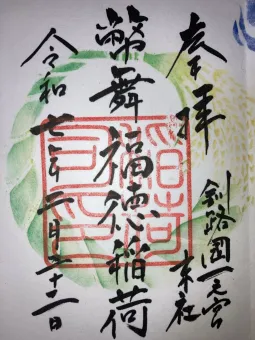 奉拝
釧路国一之宮
末社
幣舞福徳稲荷
令和七年二月二十二日
稲荷